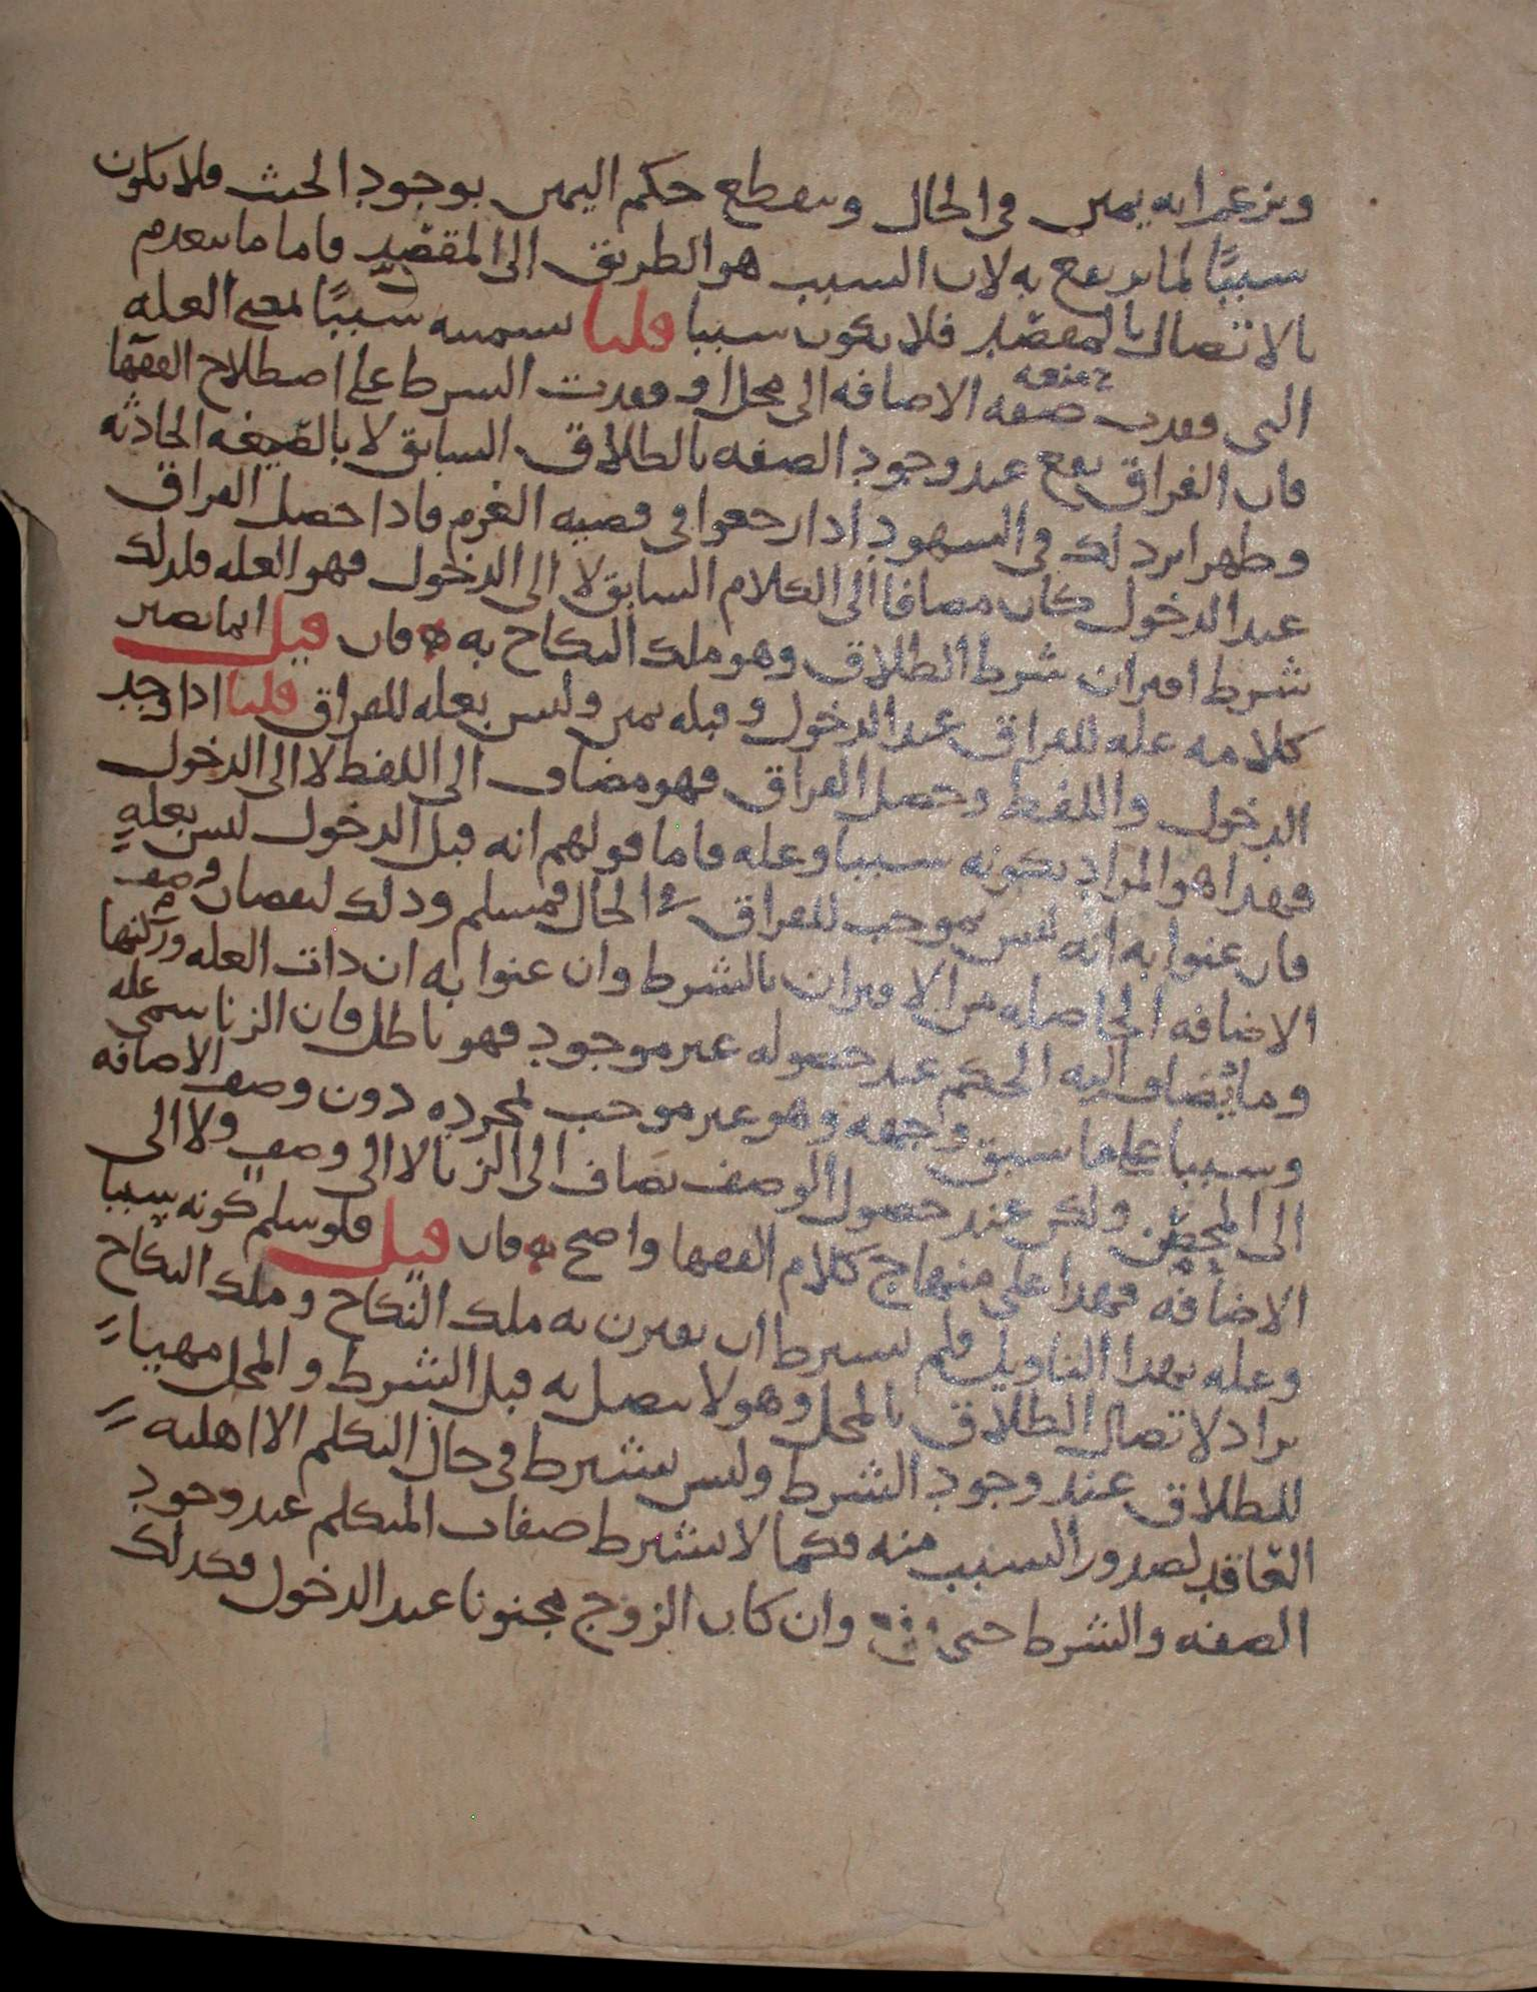 ويزعم انه يمين في الحال وينقطع حكم اليمين بوجود الحنث فلا يكون
سببًا لما يرتفع به لان السبب هو الطريق الى المقصد فاما ما ينعدم
بالاتصال بالمقصد فلا يكون سببا قلنا سميناه سببًا لمعنى العله
التي فقدت صفه الاضافه الى محل او فقدت الشرط على اصطلاح الفقها
فان الفراق يقع عند وجود الصفه بالطلاق السابق لا بالصيغه الحادثه
وظهر اثر ذلك في الشهود اذا رجعوا في قضيه الغرم فاذا حصل الفراق
عند الدخول كان مضافا الى الكلام السابق لا الى الدخول فهو العله فلذلك
شرط اقتران شرط الطلاق وهو ملك النكاح به فان قيل انما يصير
كلامه عله للفراق عند الدخول وقبله يمين وليس بعله للفراق قلنا اذا وجد
الدخول واللفظ وحصل الفراق فهو مضاف الى اللفظ لا الى الدخول
فهذا هو المراد بكونه سببا وعله فاما قولهم انه قبل الدخول ليس بعله
فان عنوا به انه ليس بموجب للفراق في الحال فمسلم وذلك لنقصان وصف
الاضافه الحاصله من الاقتران بالشرط وان عنوا به ان ذات العله وركنها
وما يُضاف اليه الحكم عند حصوله غير موجود فهو باطل فان الزنا سمي عله
وسببا على ما سبق وجهه وهو غير موجب لمجرده دون وصف الاضافه
الى المحصن ولكن عند حصول الوصف يضاف الى الزنا لا الى وصف ولا الى
الاضافه فهذا على منهاج كلام الفقها واضح فان قيل فلو سلم كونه سببا
وعله بهذا التاويل فلم يشترط ان يقترن به ملك النكاح وملك النكاح
يراد لاتصال الطلاق بالمحل وهو لا يتصل به قبل الشرط والمحل مهيا
للطلاق عند وجود الشرط وليس يشترط في حال التكلم الا اهليه
العاقد لصدور السبب منه فكما لا يشترط صفات المتكلم عند وجود
الصفه والشرط حتى وان كان الزوج مجنونا عند الدخول فكذلك